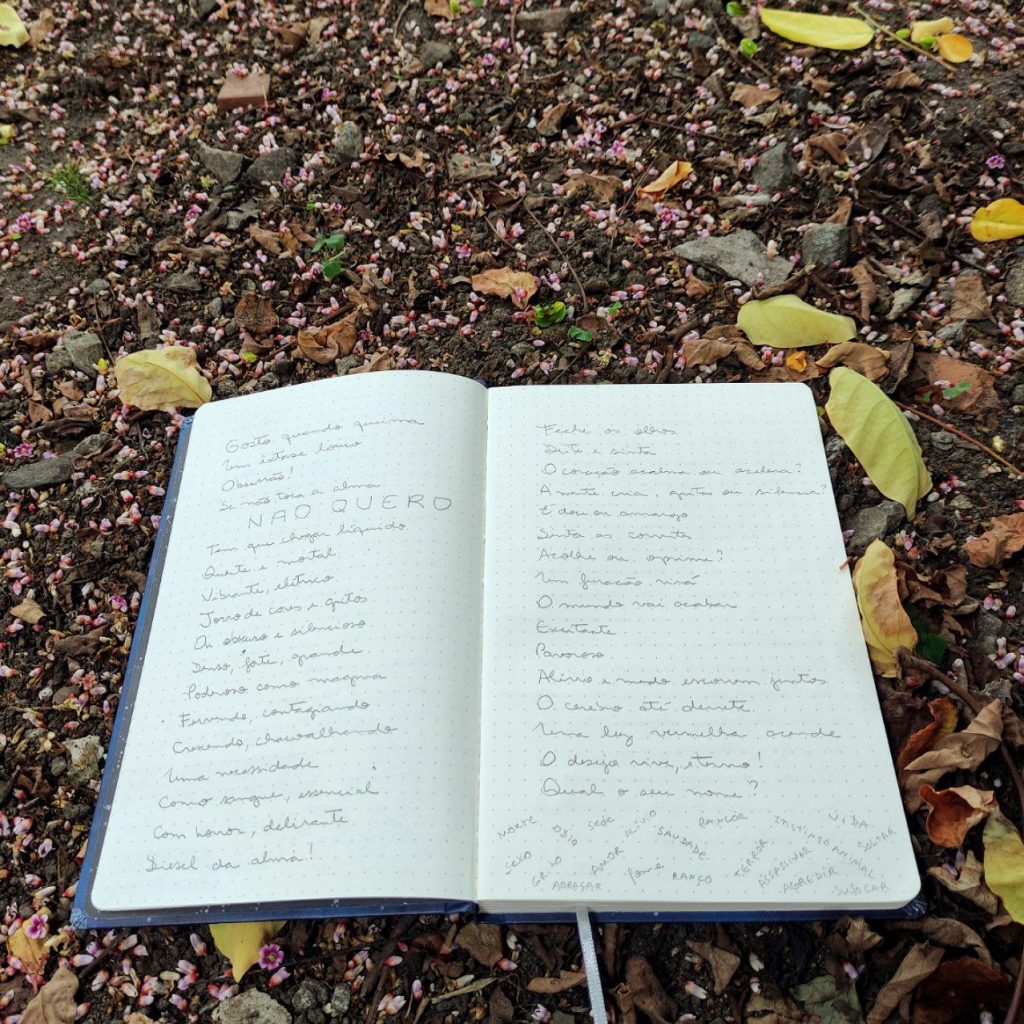 Gosto quando queima
Um êxtase louco
Obsessão!
Se não toca a alma.
NÃO QUERO
Tem que chegar líquido
Quente, e mortal
Vibrante, elétrico
Jorro de cores e gritos
Ou obscuro e silencioso
Denso, forte, grande
Poderoso como magma
Fervendo, contagiando
Crescendo, chacoalhando
Uma necessidade
Como sangue, essencial
Com horror, delirante
Diesel da alma!
Feche os olhos
Deite e sinta
O coração acalma ou acelera?
A mente cria, agita ou silencia?
É doce ou amargo
Sinta os
Acolhe ou oprime?
Um furacão, virá
O mundo vai acabar
Excitante
Pavoroso
Alívio e medo escorrem juntos
O cérebro até derrete
Uma luz vermelha acende
O desejo vive, eterno!
Qual o seu nome?
MORTE ÓDIO sede ALÍVIO SAUDADE RANCOR INSTINTO ANIMAL VIDA SOLTAR
SEXO GRITO ABRAÇAR AMOR fome RANÇO TERROR ASSASSINAR AGREDIR SUFOCAR